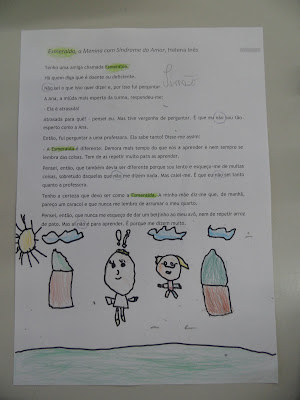 Esmeralda, a Menina com Síndrome de Amor, Helena Inês
Tenho uma amiga chamada Esmeralda.
Há quem diga que é doente ou deficiente.
Não sei o que isso quer dizer e, por isso fui perguntar.
A Ana, a miúda mais esperta da turma, respondeu-me:
- Ela é atrasada!
Atrasada para quê? - pensei eu. Mas tive vergonha de perguntar. É que eu não sou tão
esperto como a Ana.
Então, fui perguntar à nossa professora. Ela sabe tanto! Disse-me assim:
- A Esmeralda é diferente. Demora mais tempo do que nós a aprender e nem sempre se
lembra das coisas. Tem de as repetir muito para as aprender.
Pensei, então, que também devia ser diferente porque sou lento e esqueço-me de muitas
coisas, sobretudo daquelas que não me dizem nada. Mas calei-me. É que eu não sei tanto
quanto a professora.
Tenho a certeza que devo ser como a Esmeralda. A minha mãe diz-me que, de manhã,
pareço um caracol e que nunca me lembro de arrumar o meu quarto.
Pensei, então, que nunca me esqueço de dar um beijinho ao meu avô, nem de repetir arroz
de pato. Mas aí não é para aprender. É porque me dizem muito.